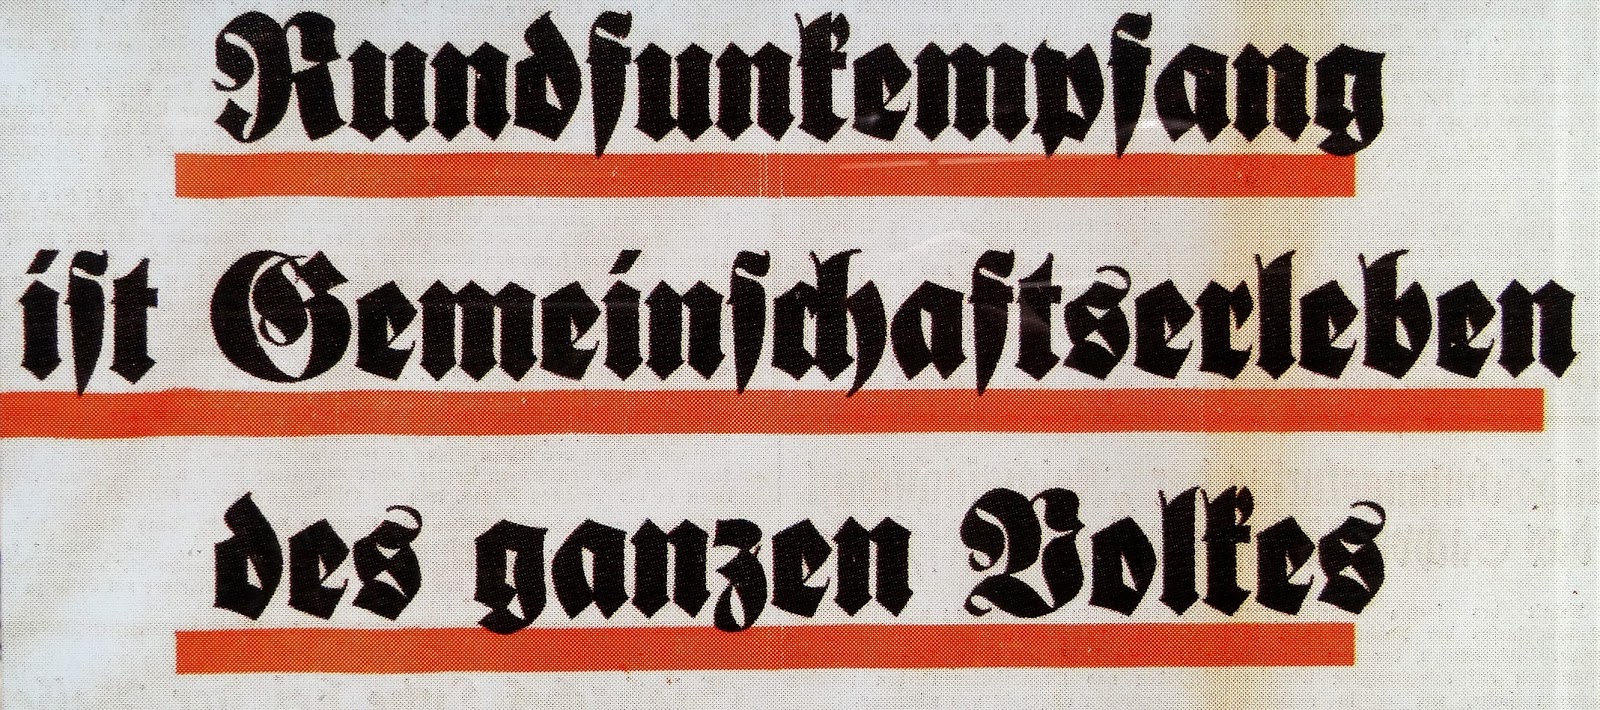 Rundfunkempfang
iſt Gemeinſchaftserleben
des ganzen Volkes